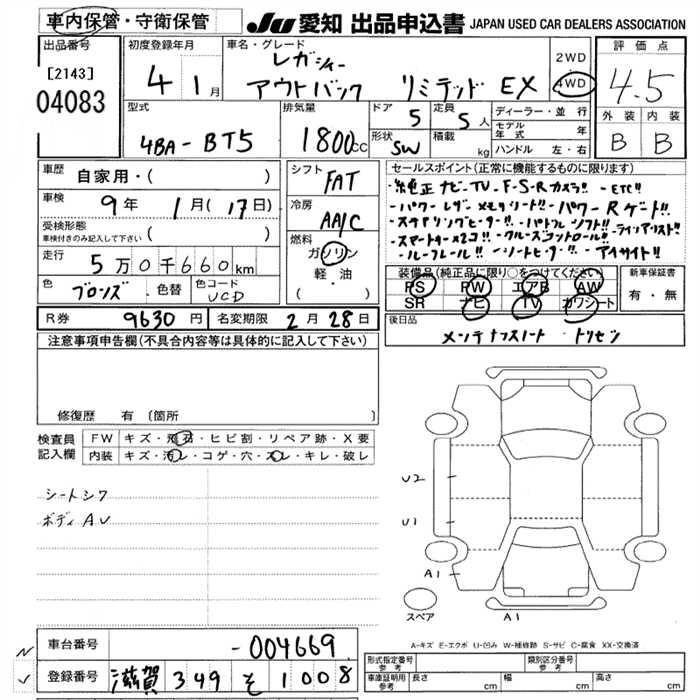 車内保管・守衛保管
JU 愛知 出品申込書 JAPAN USED CAR DEALERS ASSOCIATION
出品番号
[2143]
04083
初度登録年月
4 1月
車名・グレード
レガシィー
アウトバック リミテッド EX
2WD
4WD
評価点
4.5
外装 内装
B B
型式
4BA-BT5
排気量
1800cc
ドア
5
定員
5人
形状
SW
積載
kg
ディーラー・並行
モデル年式 年
ハンドル 左・右
車歴 自家用・( )
車検 9年 1月(17日)
受検形態
車検付きのみ記入して下さい ( )
走行 5万0千660km
色 ブロンズ 色替 色コード UCD
シフト
FAT
冷房
AA/C
燃料
ガソリン
軽・油
( )
セールスポイント(正常に機能するものに限ります)
・純正ナビ・TV・F-S-Rカメラ!! ・ETC!!
・パワーレザーメモリシート!! ・パワーRゲート!!
・ステアリングヒーター!! ・パドルシフト!!
・スマートキー×2コ!! ・クルーズコントロール!!
・ルーフレール!! ・シートヒーター!! ・アイサイト!!
装備品(純正品に限り○をつけてください)
PS PW エアB AW
SR ナビ TV カワシート
新車保証書
有・無
後日品
メンテナンスノート トリセツ
R券 9630円 名変期限 2月28日
注意事項申告欄(不具合内容等は具体的に記入して下さい)
修復歴 有 〔箇所 〕
検査員記入欄
FW キズ・飛石・ヒビ割・リペア跡・X要
内装 キズ・汚レ・コゲ・穴・スレ・キレ・破レ
シートシワ
ボディAU
U2
U1
A1
スペア
A1
A-キズ E-エクボ U-凹み W-補修跡 S-サビ C-腐食 XX-交換済
車台番号 -004669
登録番号 滋賀 349 そ 1008
形式指定番号 参考
類別区分番号 参考
車庫証明用 参考 長さ cm 幅 cm 高さ cm